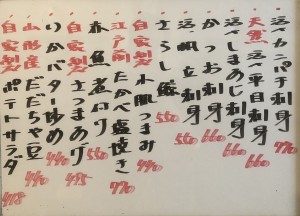 活〆カンパチ刺身 770
天然 活〆平目刺身 660
活〆しまあじ刺身 660
かつお刺身 660
活 帆立 刺身 550
〆しめ鯖 550
自家製 小肌つまみ 440
江戸前 たかべ塩焼き 770
赤魚煮付け 550
自家製 さつまあげ 495
いかバター炒め 440
山形産 だだちゃ豆 440
自家製 ポテトサラダ 418